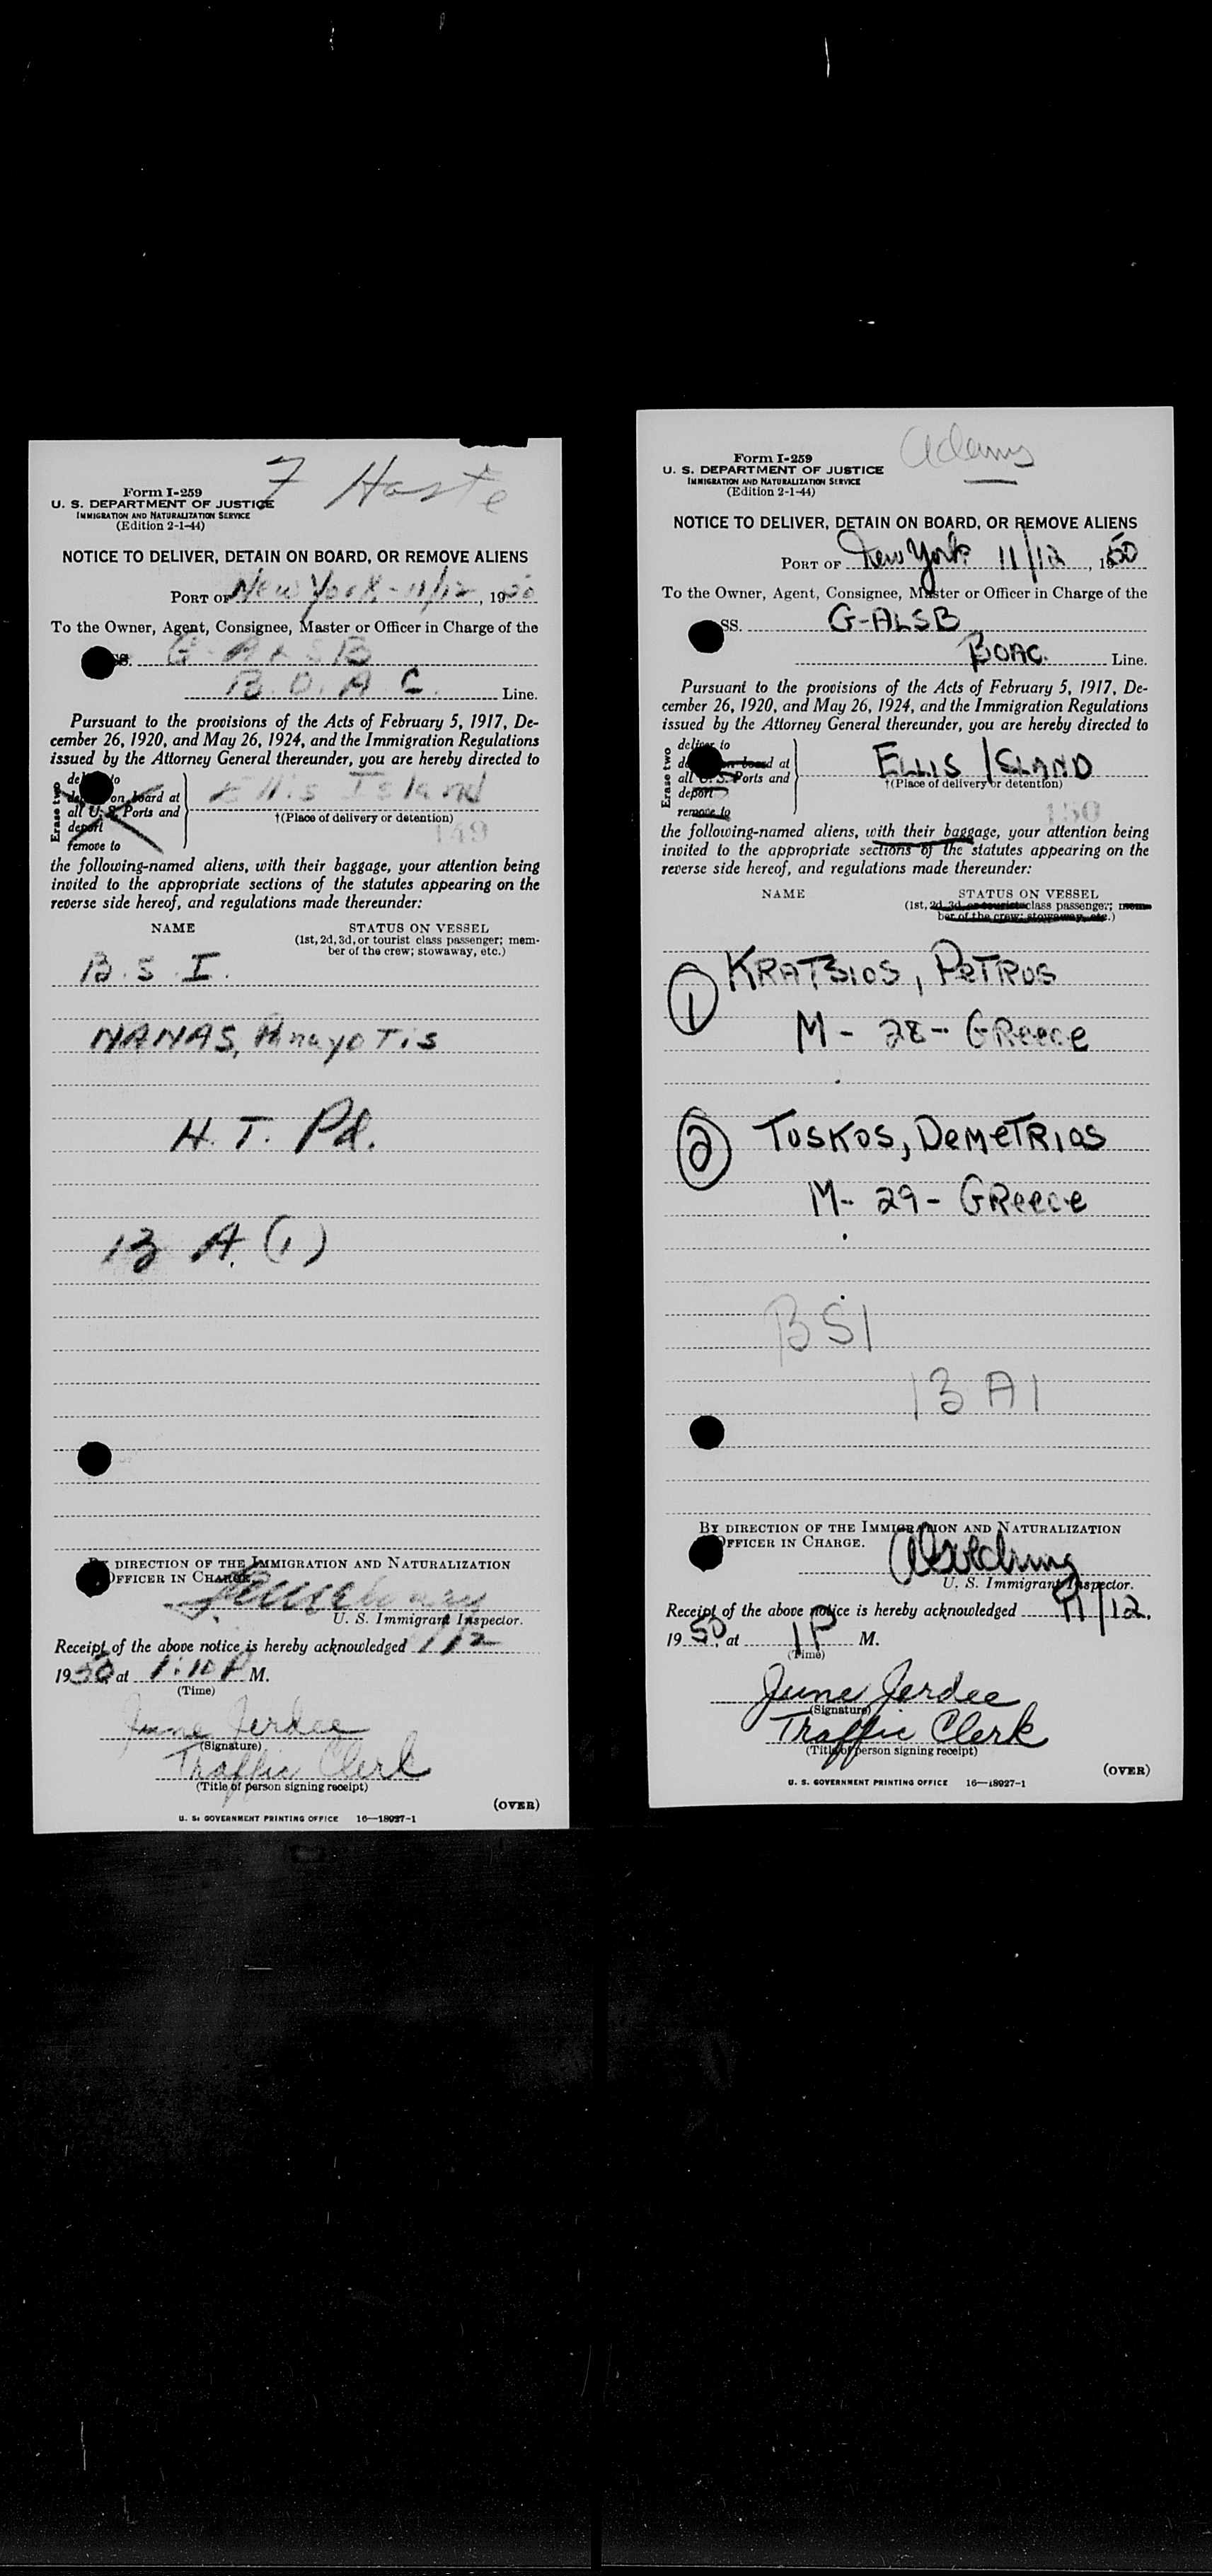 7 Haste
Form I-259
U. S. DEPARTMENT OF JUSTICE
IMMIGRATION AND NATURALIZATION SERVICE
(Edition 2-1-44)
NOTICE TO DELIVER, DETAIN ON BOARD, OR REMOVE ALIENS
PORT OF New York - 11/12, 1950
To the Owner, Agent, Consignee, Master or Officer in Charge of the
SS. G-ALSB
B.O.A.C. Line.
Pursuant to the provisions of the Acts of February 5, 1917, De-
cember 26, 1920, and May 26, 1924, and the Immigration Regulations
issued by the Attorney General thereunder, you are hereby directed to
Erase two
deliver to
detain on board at
all U. S. Ports and
deport
remove to
Ellis Island
†(Place of delivery or detention)
149
the following-named aliens, with their baggage, your attention being
invited to the appropriate sections of the statutes appearing on the
reverse side hereof, and regulations made thereunder:
NAME STATUS ON VESSEL
(1st, 2d, 3d, or tourist class passenger; mem-
ber of the crew; stowaway, etc.)
B.S.I.
NANAS, Anayotis
H.T. Pd.
13 A. (1)
BY DIRECTION OF THE IMMIGRATION AND NATURALIZATION
OFFICER IN CHARGE.
U. S. Immigrant Inspector.
Receipt of the above notice is hereby acknowledged 11/12
1950, at 1:10 P M.
(Time)
June Jerdee
(Signature)
Traffic Clerk
(Title of person signing receipt)
(OVER)
U. S. GOVERNMENT PRINTING OFFICE 16—18927-1
Adams
Form I-259
U. S. DEPARTMENT OF JUSTICE
IMMIGRATION AND NATURALIZATION SERVICE
(Edition 2-1-44)
NOTICE TO DELIVER, DETAIN ON BOARD, OR REMOVE ALIENS
PORT OF New York 11/12, 1950
To the Owner, Agent, Consignee, Master or Officer in Charge of the
SS. G-ALSB
BOAC. Line.
Pursuant to the provisions of the Acts of February 5, 1917, De-
cember 26, 1920, and May 26, 1924, and the Immigration Regulations
issued by the Attorney General thereunder, you are hereby directed to
Erase two
deliver to
detain on board at
all U. S. Ports and
deport
remove to
ELLIS ISLAND
†(Place of delivery or detention)
150
the following-named aliens, with their baggage, your attention being
invited to the appropriate sections of the statutes appearing on the
reverse side hereof, and regulations made thereunder:
NAME STATUS ON VESSEL
(1st, 2d, 3d, or tourist class passenger; mem-
ber of the crew; stowaway, etc.)
1 KRATSIOS, PETROS
M - 28 - GReece
2 TOSKOS, DeMeTRIOS
M - 29 - GReece
BSI
13 A1
BY DIRECTION OF THE IMMIGRATION AND NATURALIZATION
OFFICER IN CHARGE.
U. S. Immigrant Inspector.
Receipt of the above notice is hereby acknowledged 11/12,
1950, at 1 P M.
(Time)
June Jerdee
(Signature)
Traffic Clerk
(Title of person signing receipt)
(OVER)
U. S. GOVERNMENT PRINTING OFFICE 16—18927-1